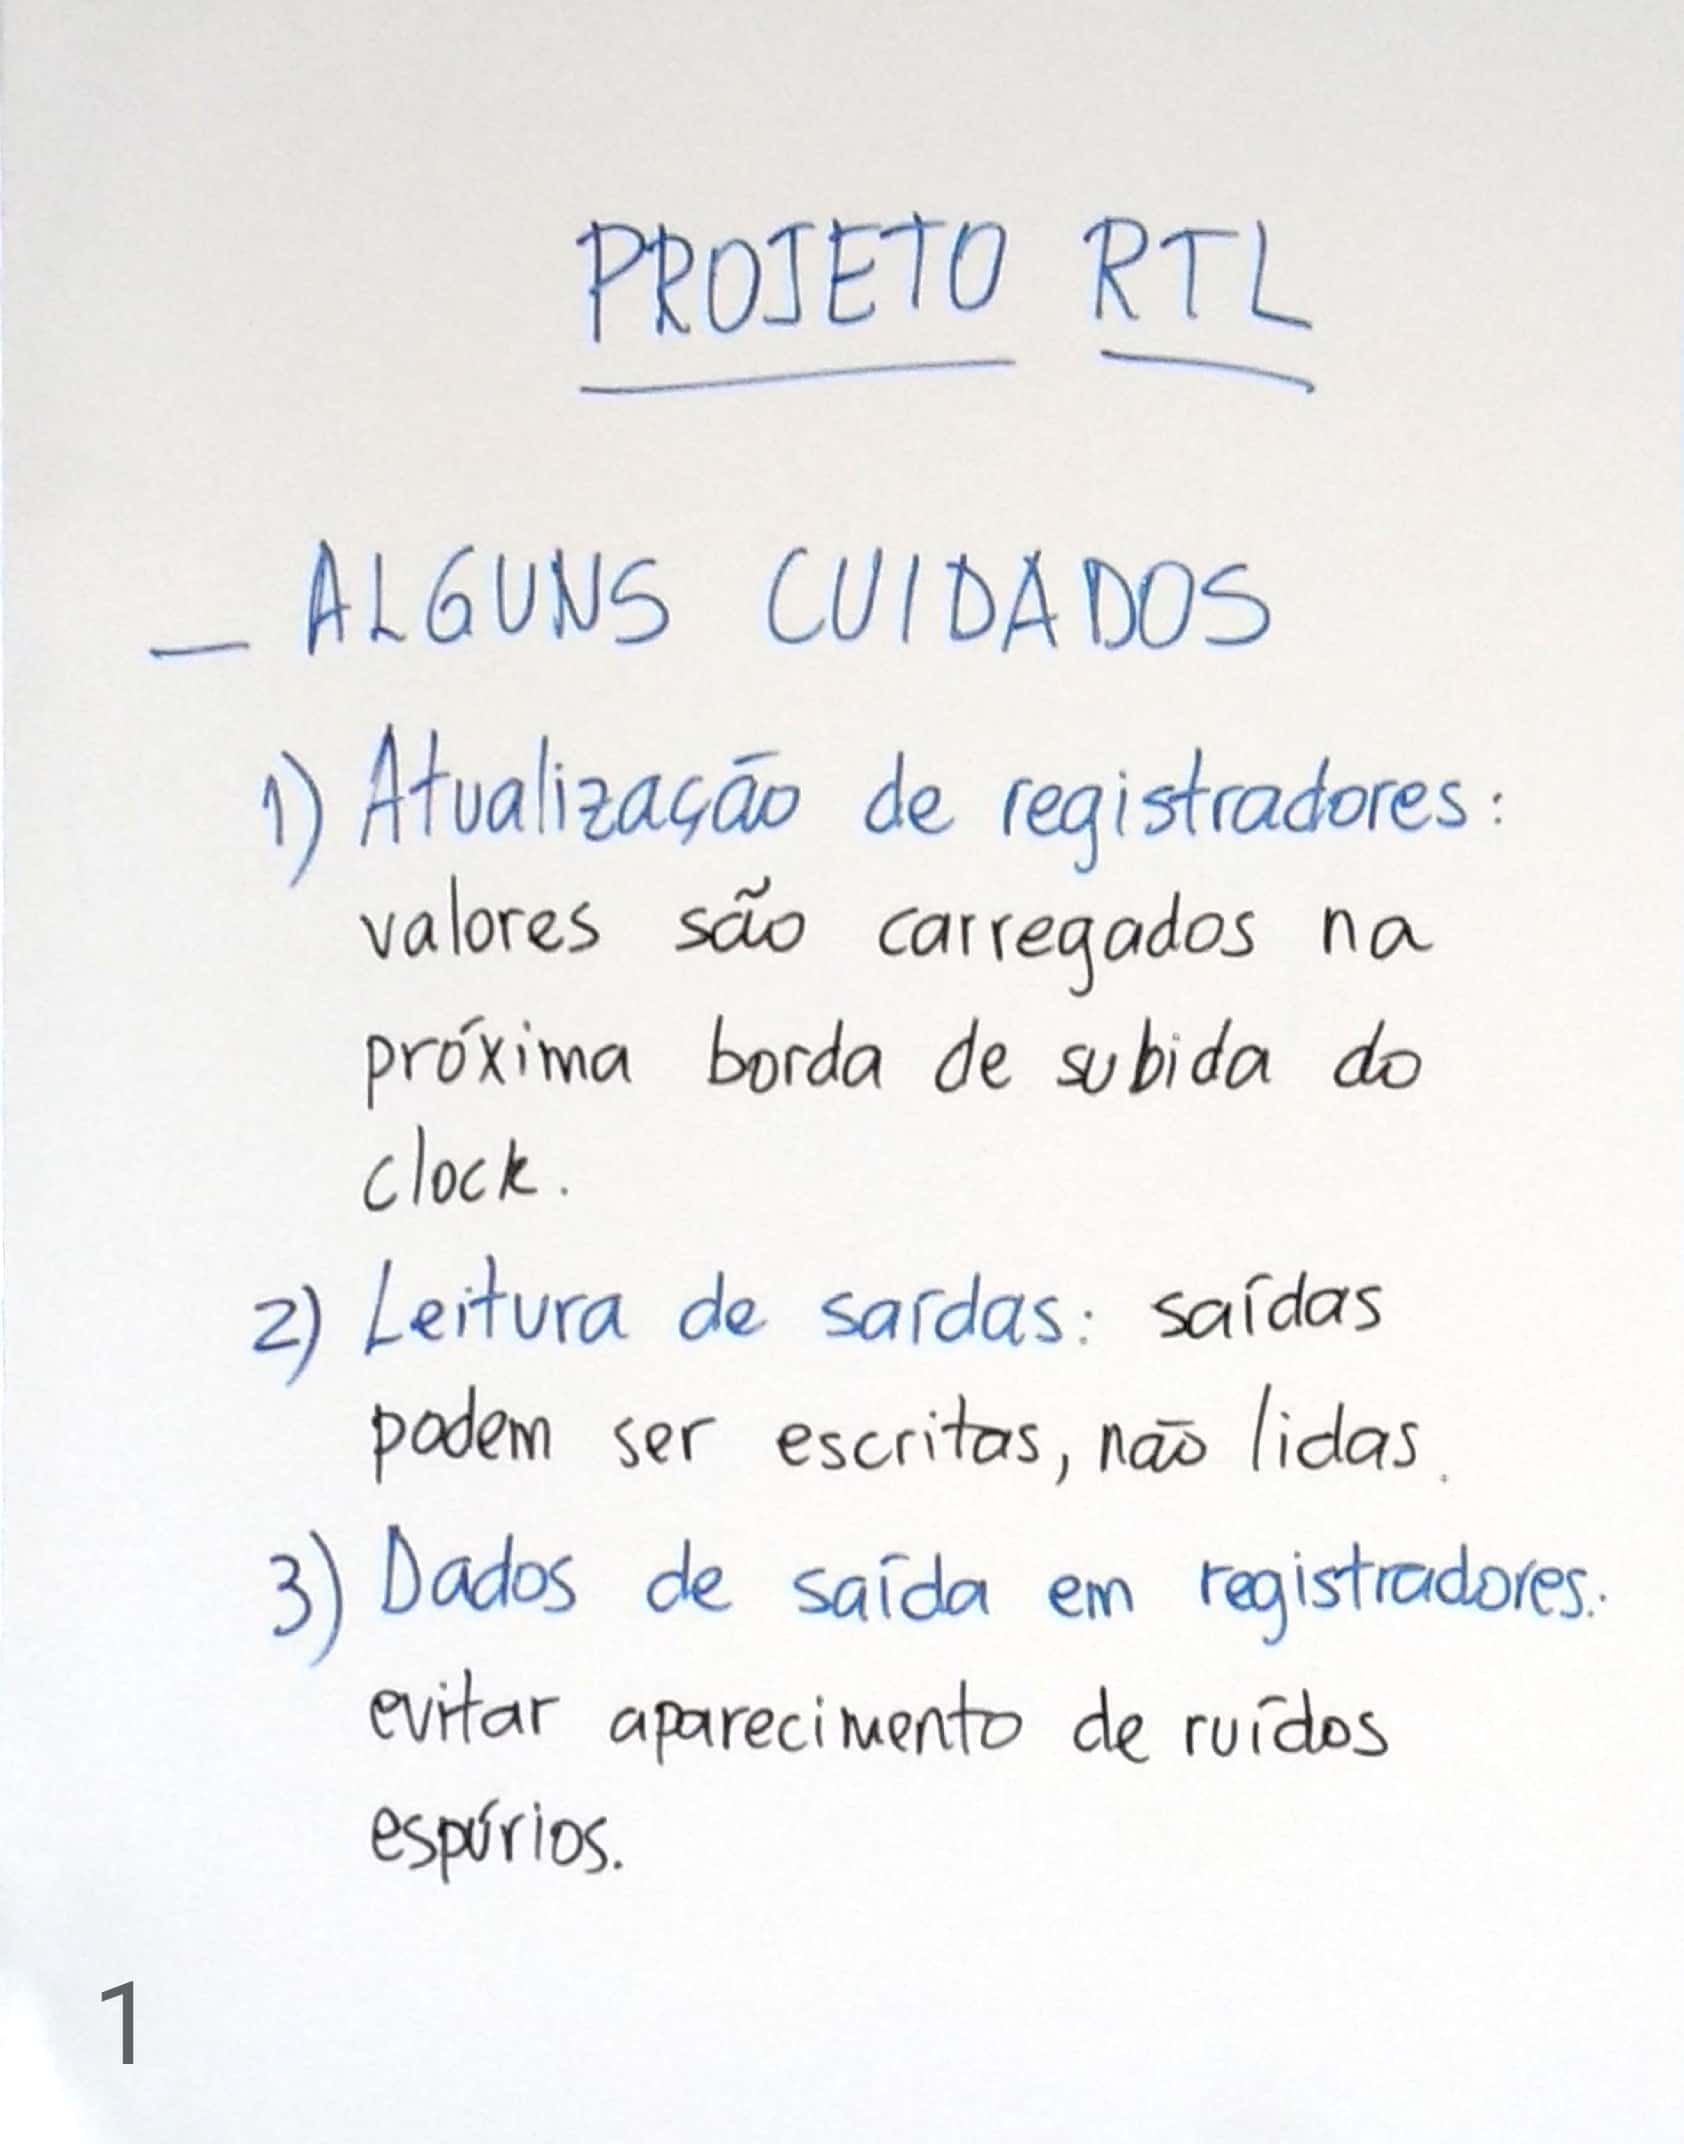 PROJETO RTL
_ ALGUNS CUIDADOS
1) Atualização de registradores:
valores são carregados na
próxima borda de subida do
clock.
2) Leitura de saídas: saídas
podem ser escritas, não lidas.
3) Dados de saída em registradores:
evitar aparecimento de ruídos
espúrios.
1